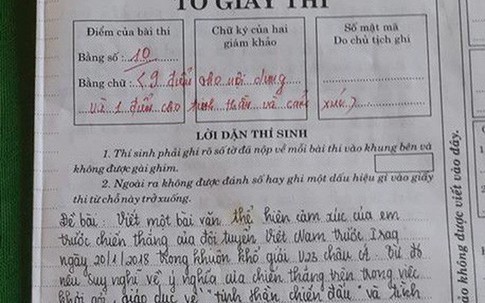 TỜ GIẤY THI
Điểm của bài thi
Bằng số : 10
Bằng chữ : (9 điểm cho nội dung
và 1 điểm cho tinh thần và cảm xúc.)
Chữ ký của hai
giám khảo
Số mật mã
Do chủ tịch ghi
LỜI DẶN THÍ SINH
1. Thí sinh phải ghi rõ số tờ đã nộp về mỗi bài thi vào khung bên và
không được gài ghim.
2. Ngoài ra không được đánh số hay ghi một dấu hiệu gì vào giấy
thi từ chỗ này trở xuống.
Đề bài : Viết một bài văn thể hiện cảm xúc của em
trước chiến thắng của đội tuyển Việt Nam trước Iraq
ngày 20/1/2018 trong khuôn khổ giải U23 châu Á. Từ đó
nêu suy nghĩ về ý nghĩa của chiến thắng trên trong việc
khơi gợi, giáo dục về "tinh thần chiến đấu" và tinh
không được viết vào đây.